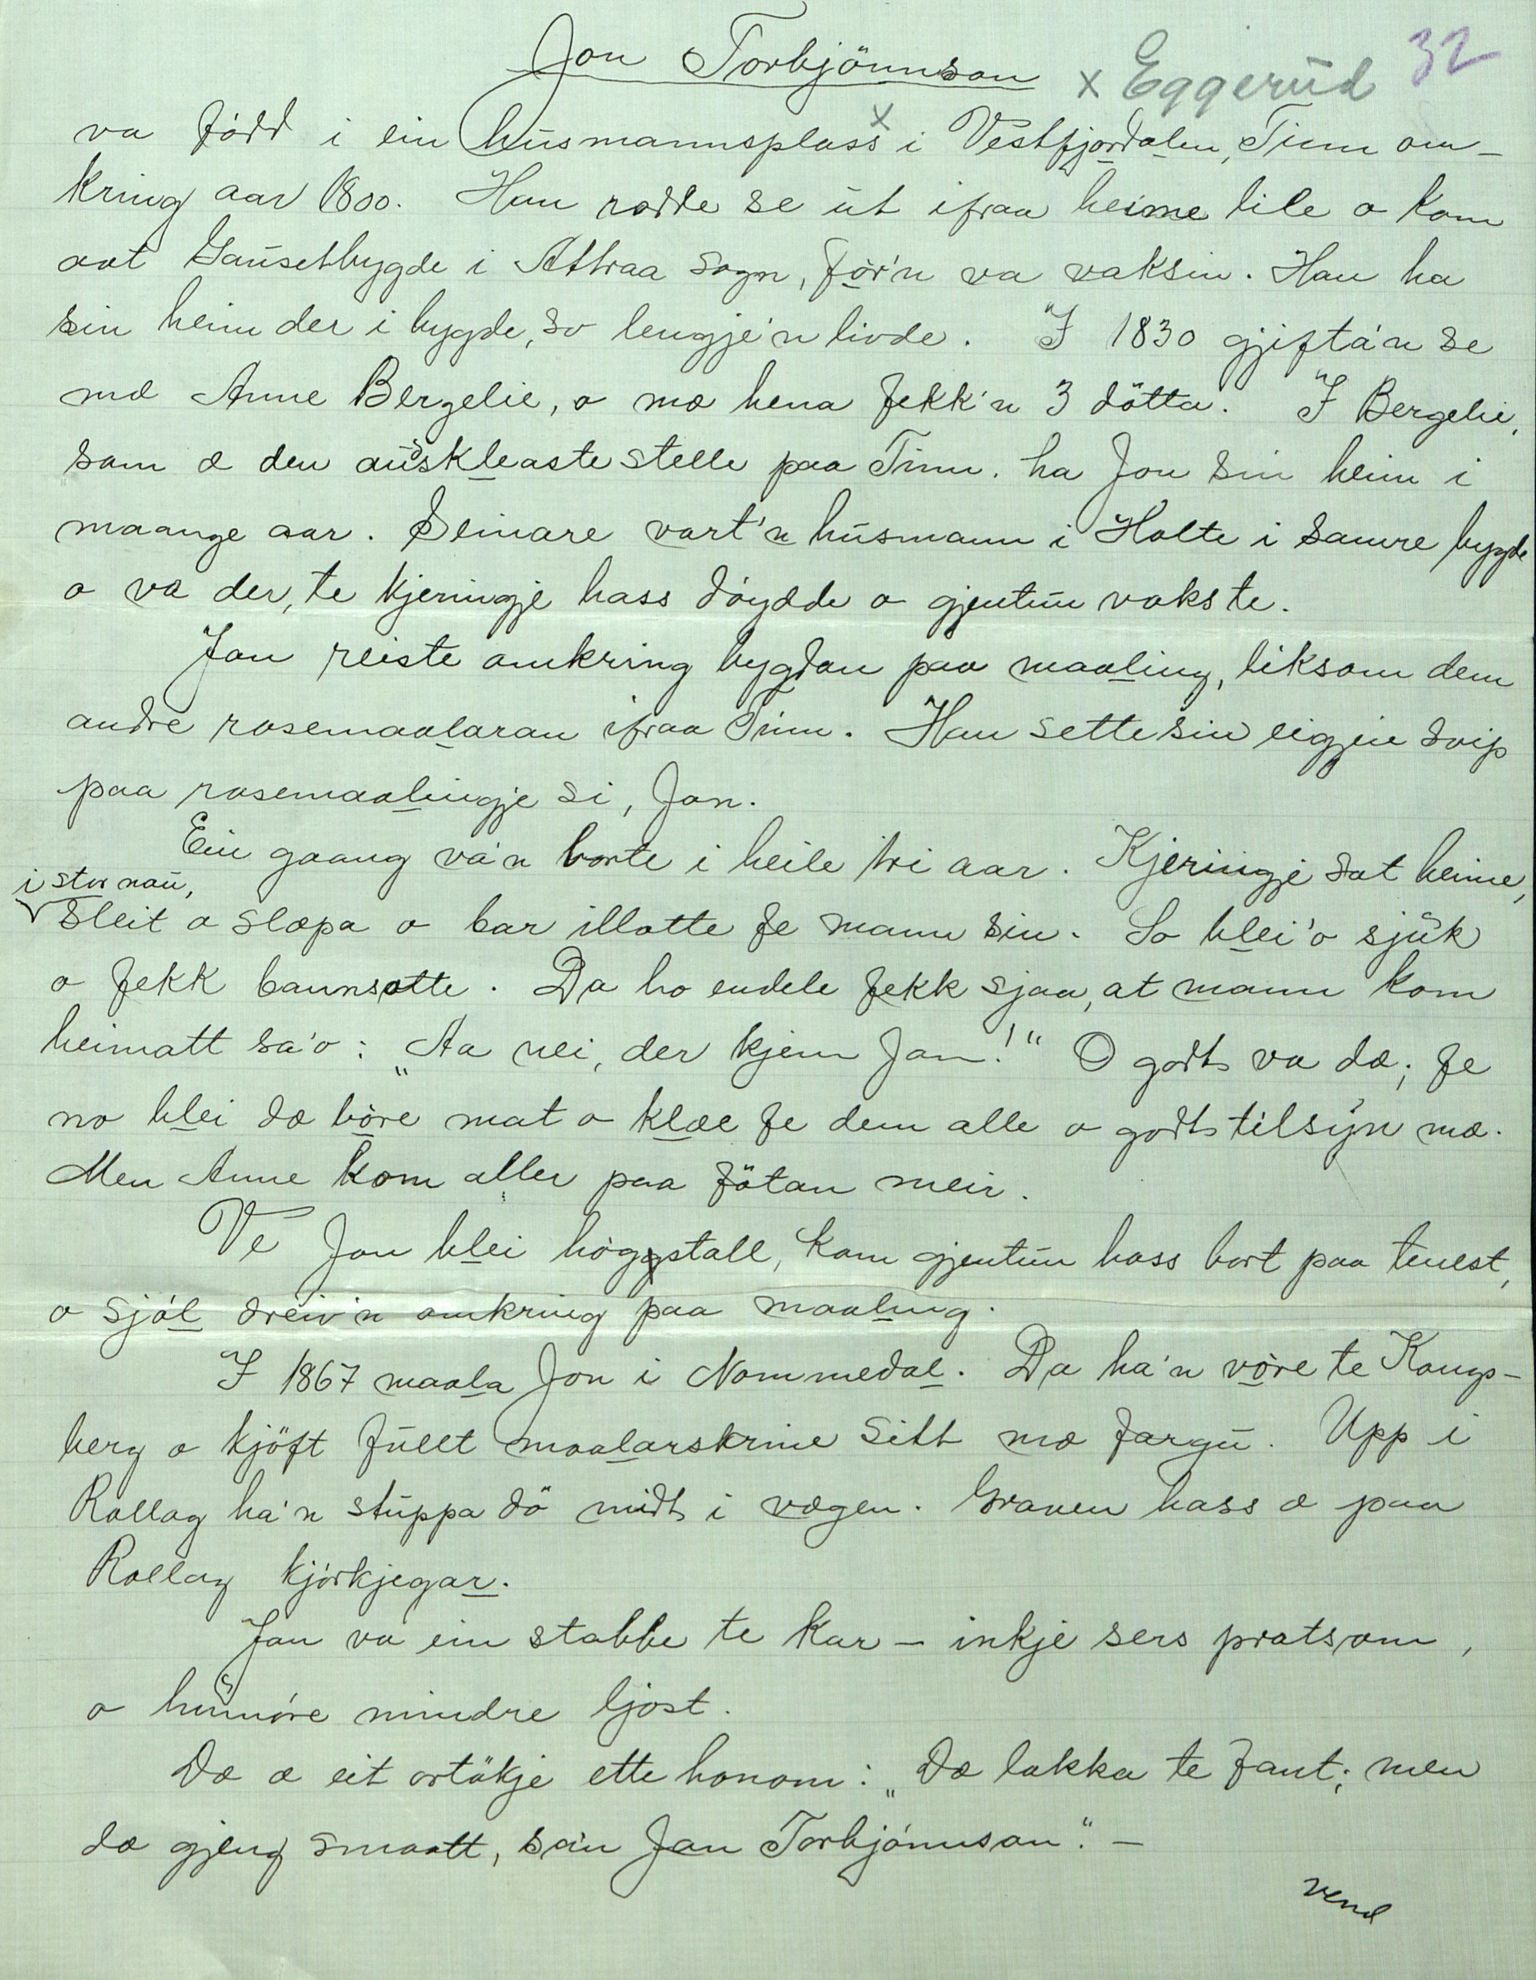 Jon Torbjönnson x Eggerud 32
va född i ein husmannsplass x i Vestfjordalen, Tinn om-
kring aar 1800. Han rodde se ut ifraa heime lile o kom
aat Gausetbygde i Attraa sogn, för'n va vaksin. Han ha
sin heim der i bygde, so lengje'n livde. I 1830 gjifta'n se
mæ Anne Bergelie, o mæ hena fekk'n 3 dötta. I Bergelie,
som æ den auskleaste stelle paa Tinn, ha Jon sin heim i
maange aar. Seinare vart'n husmann i Holte i samre bygde
o va der, te kjeringje hass döydde o gjentun vokste.
Jon reiste omkring bygdan paa maaling, liksom dem
andre rosemaalaran ifraa Tinn. Han sette sin eigjen svip
paa rosemaalingje si, Jon.
Ein gaang va'n borte i heile tri aar. Kjeringje sat heime,
i stor nau,
sleit o slæpa o bar illotte fe mann sin. So blei'o sjuk
o fekk baunsotte. Da ho endele fekk sjaa, at mann kom
heimatt sa'o: „Aa nei, der kjem Jon!“ O godt va dæ; fe
no blei dæ böre mat o klæe fe dem alle o godt tilsyn mæ.
Men Anne kom aller paa fötan meir.
Ve Jon blei höggstall, kom gjentun hass bort paa tenest,
o sjöl dreiv'n omkring paa maaling.
I 1867 maala Jon i Nommedal. Da ha'n vöre te Kongs-
berg o kjöft fullt maalarskrine sitt mæ fargu. Upp i
Rollag ha'n stuppa dö midt i vægen. Graven hass æ paa
Rollag kjörkjegar.
Jon va ein stabbe te kar – inkje sers pratsom,
o humöre mindre ljost.
Dæ æ eit ortökje ette honom: „Dæ lakka te fant; men
dæ gjeng smaatt, sa'n Jon Torbjönnson“. –
vend